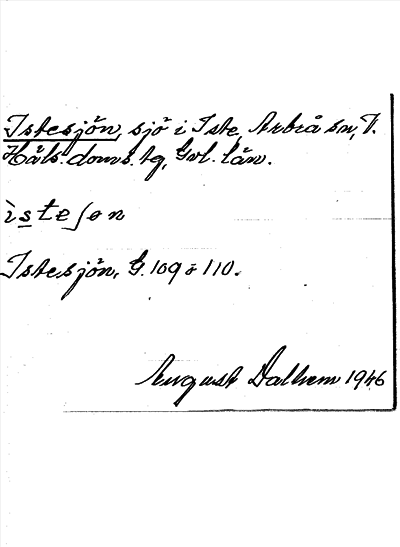 Istesjön, sjö i Iste, Arbrå sn, V.
Häls. doms. tg, Gvl. län.
ìsteʃøn
Istesjön, G. 109 o 110.
August Dalhem 1946